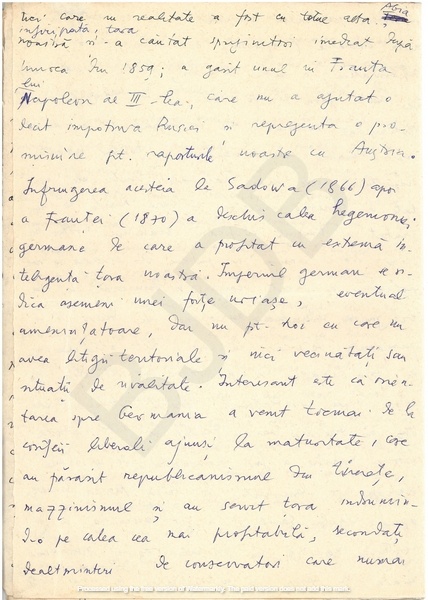 nici care in realitate a fost cu totul alta. Abia
înfiripată, țara
noastră și-a căutat sprijinitor imediat după
unirea din 1859; a găsit unul în Franța
lui
Napoleon al III-lea, care nu a ajutat-o
decît împotriva Rusiei și reprezenta o pro-
misiune pt. raporturile noastre cu Austria.
Înfrîngerea acesteia la Sadowa (1866) apoi
a Franței (1870) a deschis calea hegemoniei
germane de care a profitat cu extremă in-
teligență țara noastră. Imperiul german se ri-
dica asemeni unei forțe uriașe, eventual
amenințătoare, dar nu pt. noi cu care nu
avea litigii teritoriale și nici vecinătăți sau
situații de rivalitate. Interesant este că orien-
tarea spre Germania a venit tocmai de la
corifeii liberali ajunși la maturitate, care
au părăsit republicanismul din tinerețe,
mazzinismul și au servit țara îndrumîn-
d-o pe calea cea mai profitabilă, secondați
dealtminteri de conservatori care numai
BJDB
Processed using the free version of Watermarkly. The paid version does not add this mark.